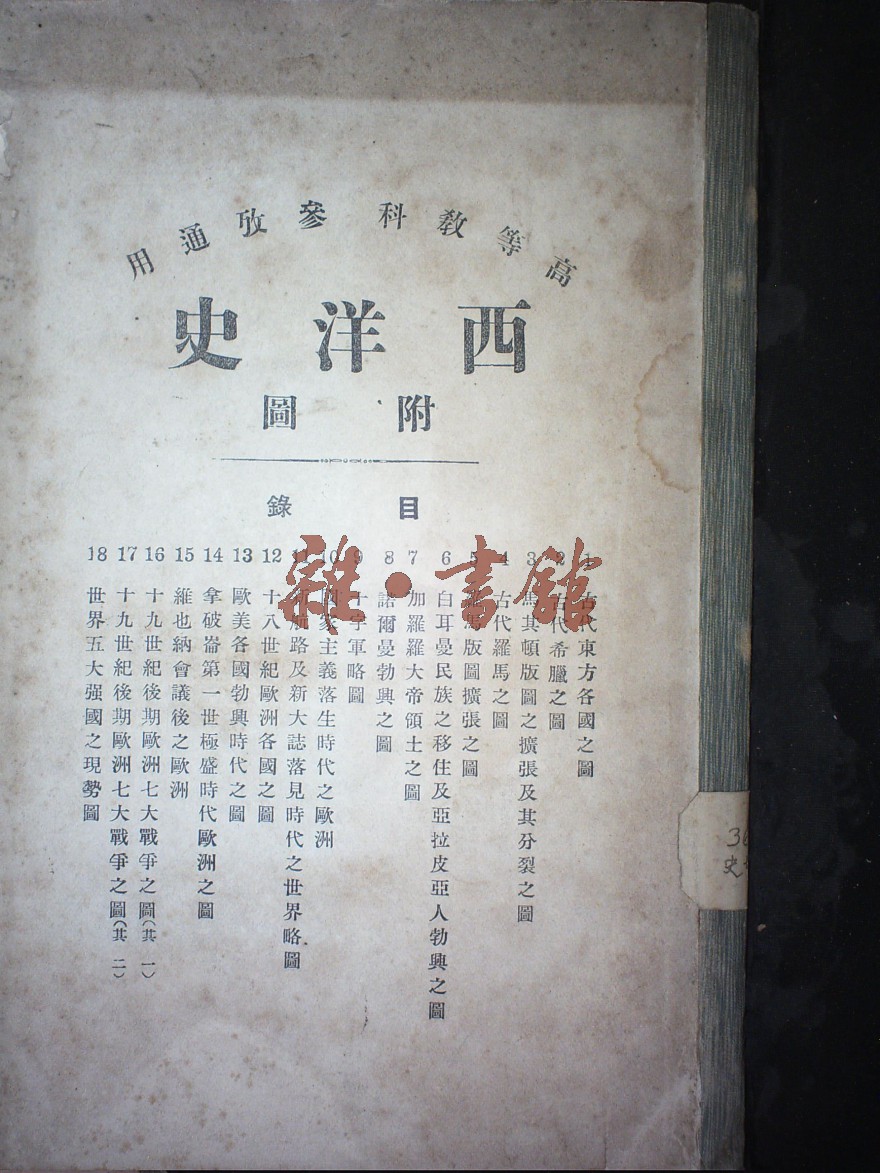 高等教科參攷通用
西洋史
附圖
目錄
1 古代東方各國之圖
2 古代希臘之圖
3 馬其頓版圖之擴張及其分裂之圖
4 古代羅馬之圖
5 羅馬版圖擴張之圖
6 白耳曼民族之移住及亞拉皮亞人勃興之圖
7 加羅羅大帝領土之圖
8 諾爾曼勃興之圖
9 十字軍略圖
10 國家主義落生時代之歐洲
11 新航路及新大誌落見時代之世界略圖
12 十八世紀歐洲各國之圖
13 歐美各國勃興時代之圖
14 拿破崙第一世極盛時代歐洲之圖
15 維也納會議後之歐洲
16 十九世紀後期歐洲七大戰爭之圖(其一)
17 十九世紀後期歐洲七大戰爭之圖(其二)
18 世界五大强國之現勢圖
雜·書館
史